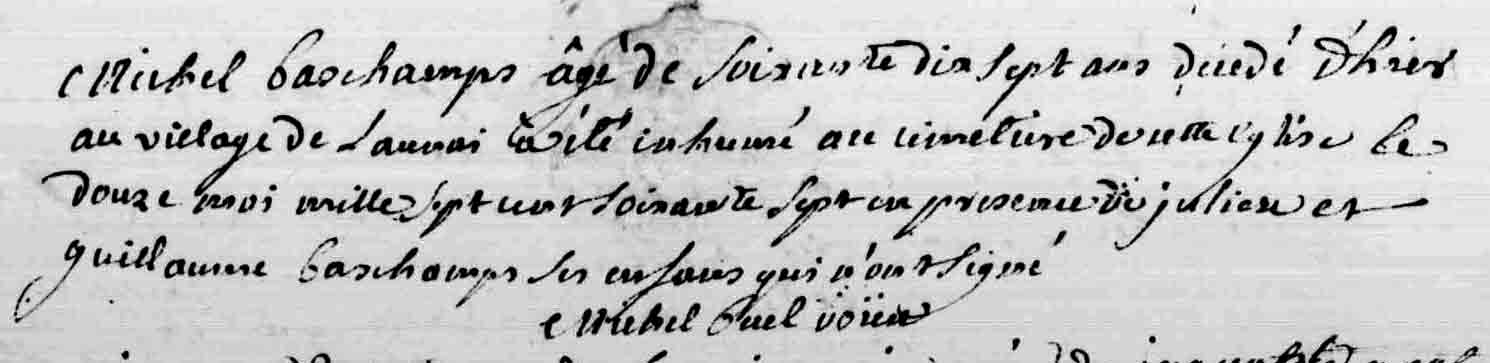 Michel baschamps âgé de soixante dix sept ans décédé d'hier
au village de Launai a été inhumé au cimetiere de cette église le
douze mai mille sept cent soixante sept en presence de julien et
guillaume baschamps ses enfans qui n'ont signé
Michel buel